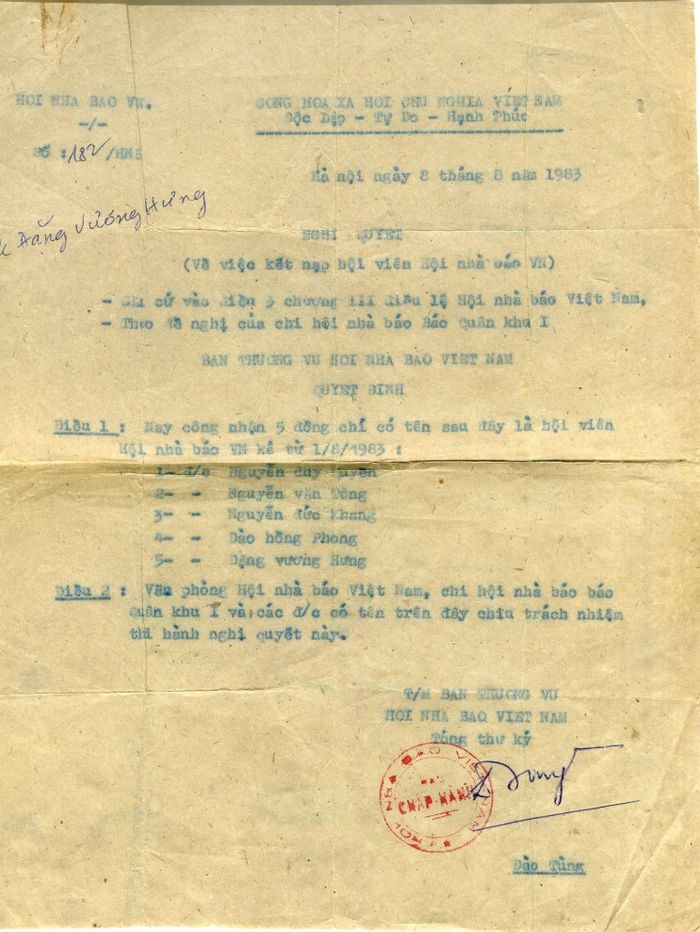 HOI NHA BAO VN.
CONG HOA XA HOI CHU NGHIA VIET NAM
-/-
Độc Lập - Tự Do - Hạnh Phúc
Số : 182 /HNB
Hà nội ngày 8 tháng 8 năm 1983
Đặng Vương Hưng
NGHI QUYET
(Về việc kết nạp hội viên Hội nhà báo VN)
- Căn cứ vào Điều 3 chương III điều lệ Hội nhà báo Việt Nam,
- Theo đề nghị của chi hội nhà báo Báo Quân khu I
BAN THUONG VU HOI NHA BAO VIET NAM
QUYET DINH
Điều 1 : Nay công nhận 5 đồng chí có tên sau đây là hội viên
Hội nhà báo VN kể từ 1/8/1983 :
1- đ/c Nguyễn duy
2- - Nguyễn văn Tông
3- - Nguyễn đức Khang
4- - Đào hồng Phong
5- - Đặng vương Hưng
Điều 2 : Văn phòng Hội nhà báo Việt Nam, chi hội nhà báo báo
Quân khu I và các đ/c có tên trên đây chịu trách nhiệm
thi hành nghị quyết này.
T/M BAN THUONG VU
HOI NHA BAO VIET NAM
Tổng thư ký
HOI NHA BAO VIET NAM
BAN
CHAP HANH
Đào Tùng